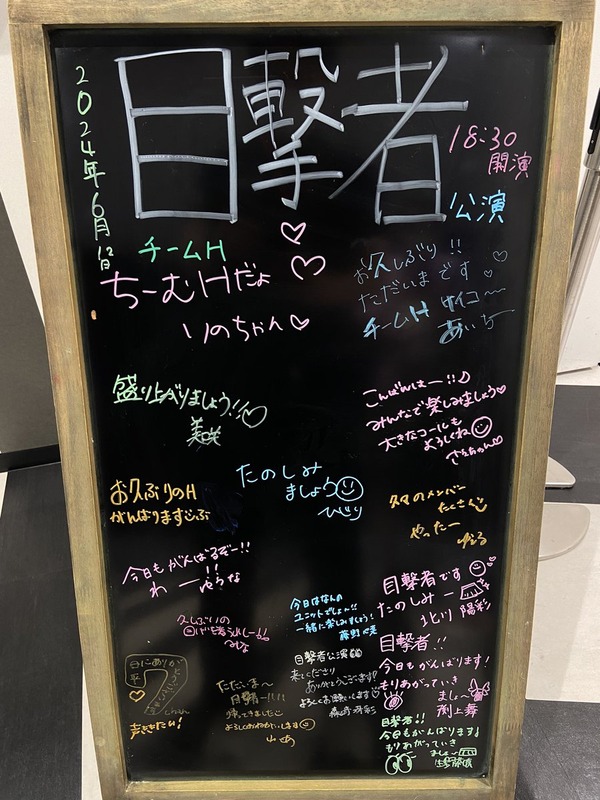 2024年6月12日
目撃者
18:30
開演
公演
チームH
ちーむHだよ
りのちゃん♡
お久しぶり!!
ただいまです
チームH サイコ〜
あいち
盛り上がりましょう!!
美咲
こんばんはー!!♪
みんなで楽しみましょう♡
大きなコールも
よろしくね
さえちゃん
たのしみ
ましょう
ひじり
お久ぶりのH
がんばります
久々のメンバー
たくさん
やったー
今日もがんばるぞー!!
わー!!
目撃者です
たのしみー
北川 陽彩
久しぶりの
今日はなんの
ユニットでしょ〜!!
一緒に楽しみましょう!
目撃者!!
今日もがんばります!
もりあがっていき
ましょ〜
渕上舞
目撃者公演
来てくださり
ありがとうございます!
よろしくお願いします
声ききたい!
ただいま〜
目撃者ー!!!!
帰ってきました
よろしくおねがいします
目撃者!!
今日もがんばります!
もりあがっていき
ましょ〜